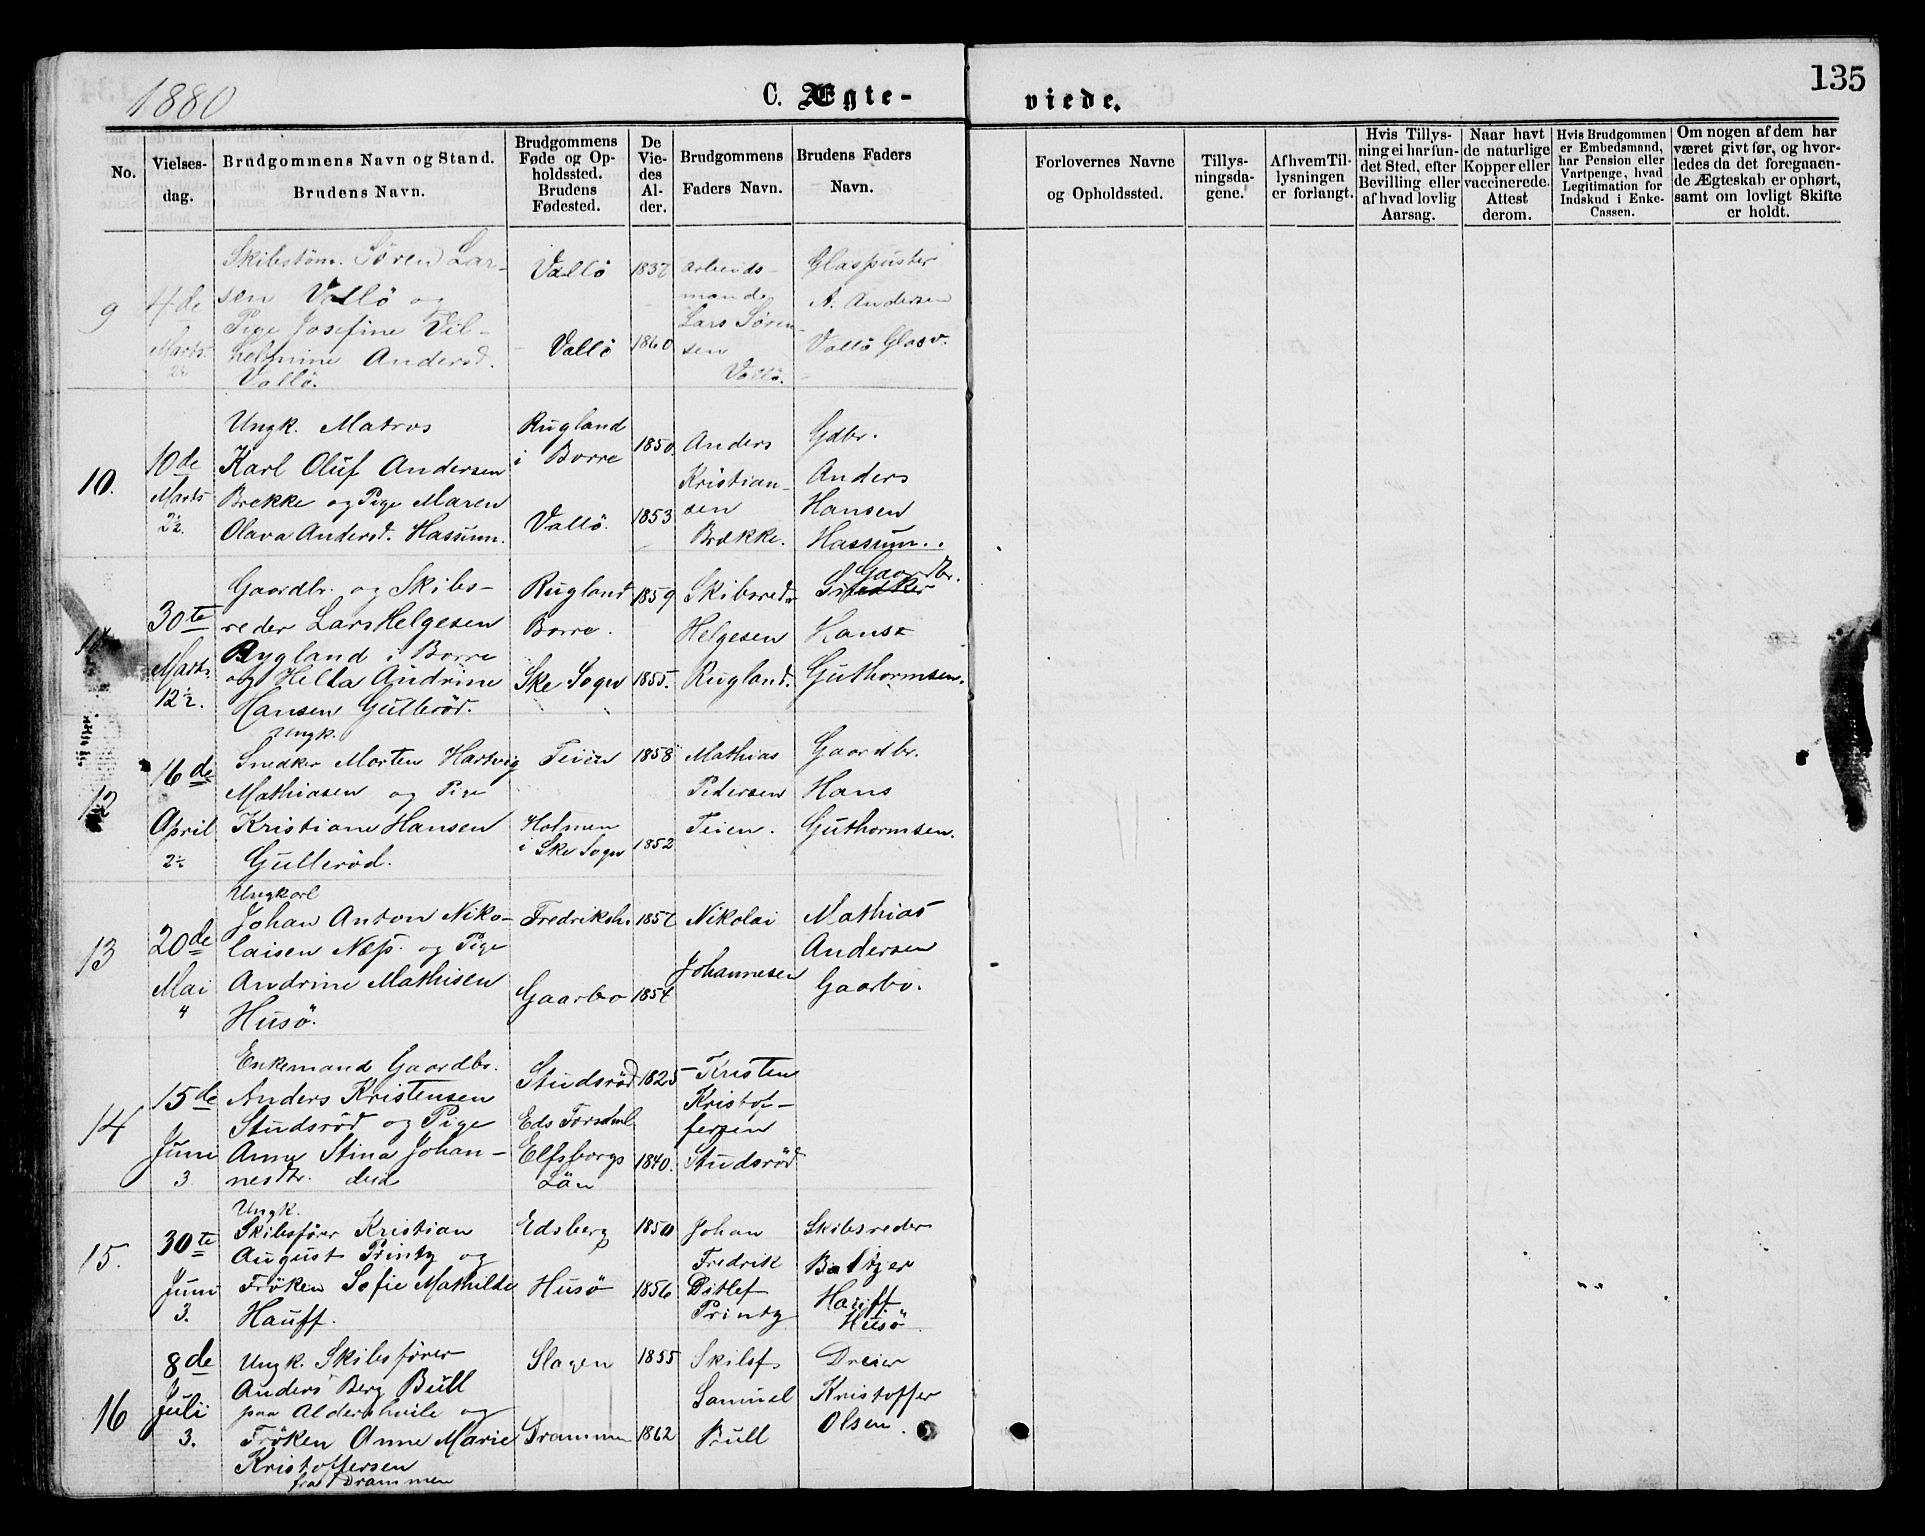 1880
C. Ægte-
viede.
135
No.
Vielses-
dag.
Brudgommens Navn og Stand.
Brudens Navn.
Brudgommens
Føde og Op-
holdssted.
Brudens
Fødested.
De
Vie-
des
Al-
der.
Brudgommens
Faders Navn.
Brudens Faders
Navn.
Forlovernes Navne
og Opholdssted.
Tillys-
ningsda-
gene.
Af hvem Til-
lysningen
er forlangt.
Hvis Tillys-
ning ei har fun-
det Sted, efter
Bevilling eller
af hvad lovlig
Aarsag.
Naar havt
de naturlige
Kopper eller
vaccinerede.
Attest
derom.
Hvis Brudgommen
er Embedsmand,
har Pension eller
Vartpenge, hvad
Legitimation for
Indskud i Enke-
Cassen.
Om nogen af dem har
været givt før, og hvor-
ledes da det foregaaen-
de Ægteskab er ophørt,
samt om lovligt Skifte
er holdt.
9
4de
Marts
2½
Skibstøm. Søren Lar-
sen Vallö og
Pige Josefine Vil-
helmine Andersd.
Vallö.
Vallö
Vallö
1837
1860
Arbeids-
mand
Lars Søren-
sen
Vallö.
Glaspuster
A. Andersen
Vallö Glasv.
10.
10de
Marts
2½.
Ungk. Matros
Karl Oluf Andersen
Brekke og Pige Maren
Olava Andersd. Hassum.
Rugland
i Borre
Vallö.
1850.
1853
Anders
Kristian-
sen
Brekke.
Gdbr.
Anders
Hansen
Hassum.
11
30te
Marts
12½.
Gaardbr. og Skibs-
reder Lars Helgesen
Rygland i Borre
og Hella Andrine
Hansen Gulleröd.
Rugland
Borre.
Ske Sogn
1859
1855.
Skibsred.
Helgesen
Rugland.
Gaardbr.
Snedker
Hans
Guthormsen.
12
16de
April
2½
Ungk.
Snedker Morten Hartvig
Mathiasen og Pige
Kristiane Hansen
Gullerød.
Teien
Holmen
i Ske Sogn
1858
1852
Mathias
Pedersen
Teien.
Gaardbr.
Hans
Guthormsen.
13
20de
Mai
4
Ungkarl
Johan Anton Niko-
laisen Næs. og Pige
Andrine Mathisen
Husö.
Fredriksh.
Gaarbo
1857
1854
Nikolai
Johannesen
Mathias
Andersen
Gaarbo.
14
15de
Juni
3
Enkemand Gaardbr.
Anders Kristensen
Studsröd og Pige
Anne Stina Johan-
nesdtr. dsd
Studsröd
Eds Forsaml.
Elfsborgs
Län
1825
1840.
Kristen
Kristof-
fersen
Studsröd
15.
30te
Juni
3.
Ungk.
Skibsfører Kristian
August Printz og
Frøken Sofie Mathilde
Hauff.
Edsberg
Husö
1850
1856
Johan
Fredrik
Ditlef
Printz
Skibsreder
Baltzer
Hauff
Husö
" "
16
8de
Juli
3.
Ungk. Skibsfører
Anders Berg Bull
paa Aldershvile og
Frøken Anne Marie
Kristoffersen
fra Drammen
Slagen
Drammen
1855
1862
Skibsf.
Samuel
Bull
Dreier
Kristoffer
Olsen.